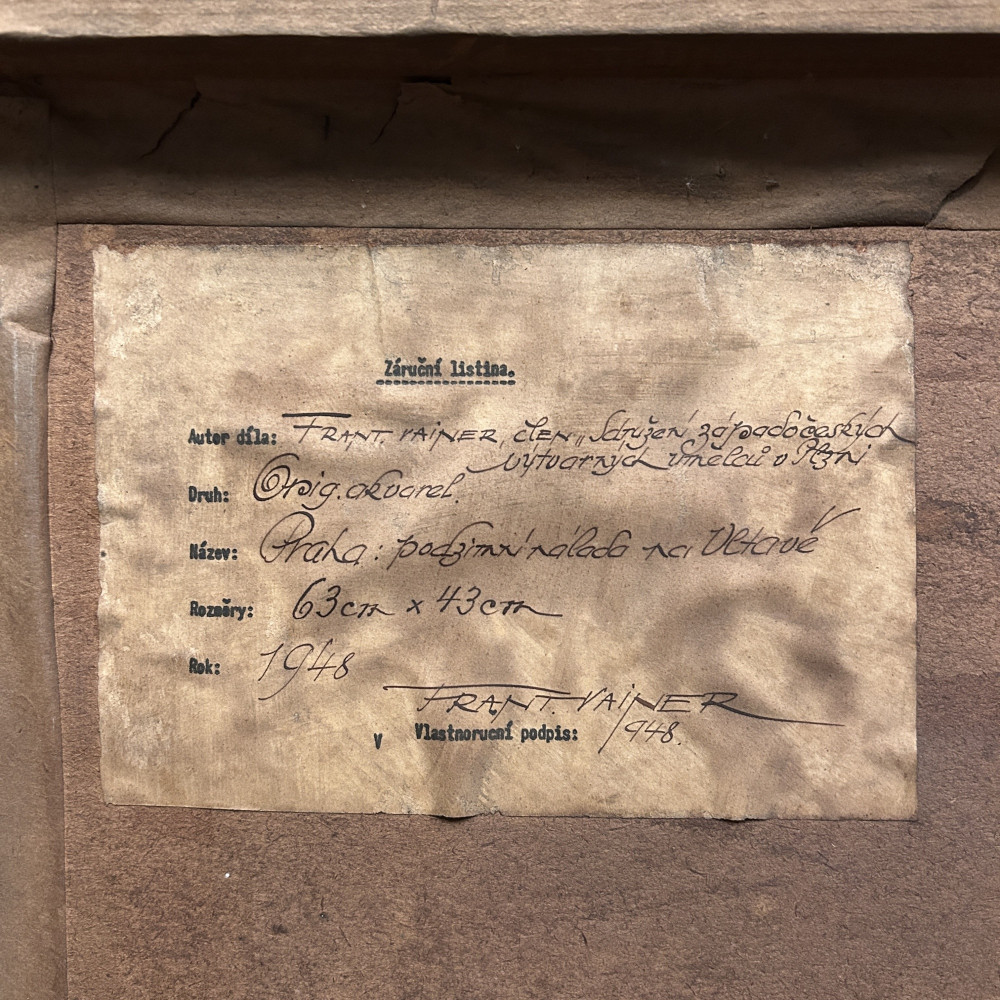 Záruční listina.
Autor díla: FRANT. VAINER, člen „Sdružení západočeských
výtvarných umělců v Plzni
Druh: Orig. akvarel.
Název: Praha: podzimní nálada na Vltavě
Rozměry: 63cm x 43cm
Rok: 1948
FRANT. VAINER
V Vlastnorucní podpis: 1948.